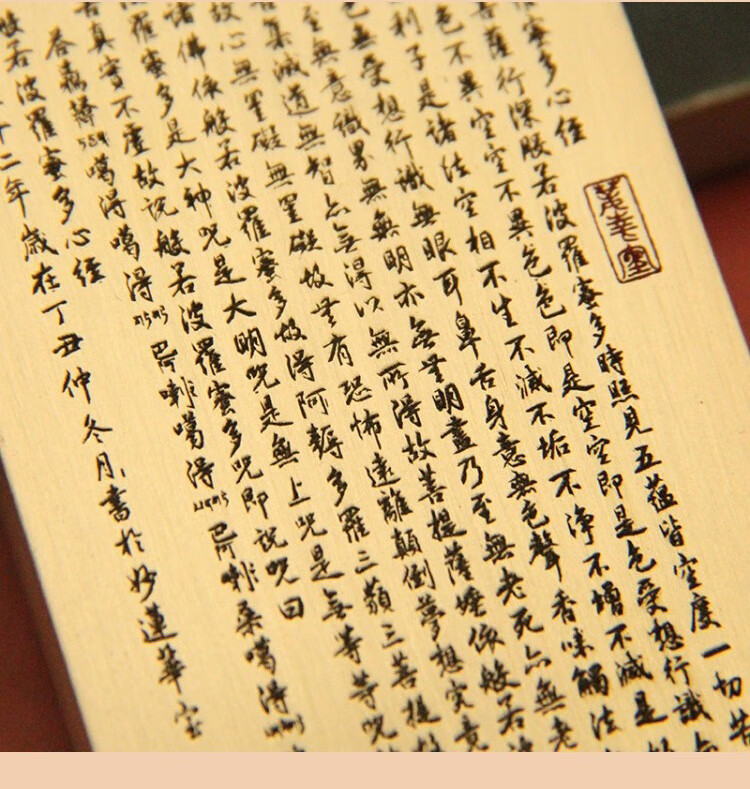 羅蜜多心経
薩行深般若波羅蜜多時照見五蘊皆空度一切苦
色不異空空不異色色即是空空即是色受想行識亦
利子是諸法空相不生不減不垢不淨不增不減是
色無受想行識無眼耳鼻舌身意無色聲香味觸法
至無意識界無無明亦無無明盡乃至無老死亦無老
苦集滅道無智亦無得以無所得故菩提薩埵依般若波
故心無罣礙無罣礙故無有恐怖遠離顛倒夢想究竟
諸佛依般若波羅蜜多故得阿耨多羅三藐三菩提故
羅蜜多是大神咒是大明咒是無上咒是無等等咒
真實不虛故說般若波羅蜜多咒即說咒曰
噶得噶得巴阿喇噶得巴阿喇桑噶得
般若波羅蜜多心経
十二年歲在丁丑仲冬月書於妙蓮華室